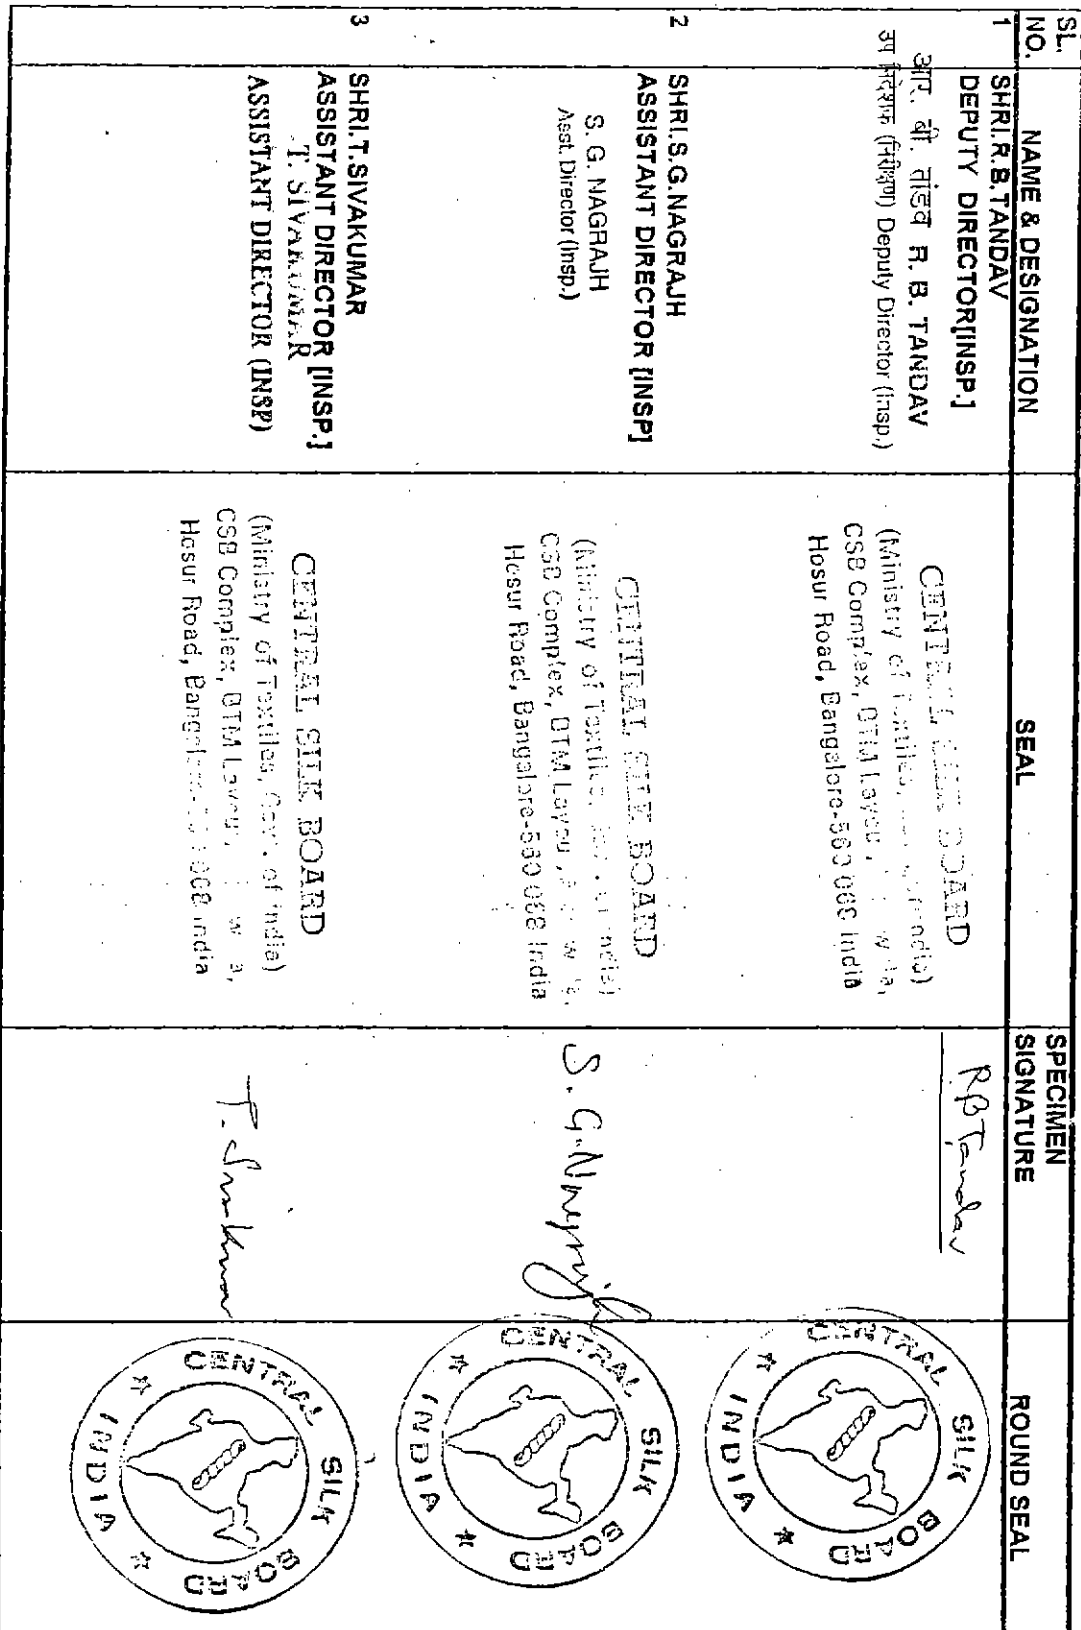 SL. NO.
NAME & DESIGNATION
SEAL
SPECIMEN SIGNATURE
ROUND SEAL
1
SHRI.R.B.TANDAV
DEPUTY DIRECTOR[INSP.]
आर. बी. तांडव R. B. TANDAV
उप निदेशक (निरीक्षण) Deputy Director (Insp.)
CENTRAL SILK BOARD
(Ministry of Textiles, India)
CSB Complex, BTM Layout,
Hosur Road, Bangalore-560 068 India
RBTandav
CENTRAL SILK BOARD
INDIA
2
SHRI.S.G.NAGRAJH
ASSISTANT DIRECTOR [INSP]
S. G. NAGRAJH
Asst. Director (Insp.)
CENTRAL SILK BOARD
(Ministry of Textiles, India)
CSB Complex, BTM Layout,
Hosur Road, Bangalore-560 068 India
S. G. Nagrajh
CENTRAL SILK BOARD
INDIA
3
SHRI.T.SIVAKUMAR
ASSISTANT DIRECTOR [INSP.]
T. SIVAKUMAR
ASSISTANT DIRECTOR (INSP)
CENTRAL SILK BOARD
(Ministry of Textiles, Govt. of India)
CSB Complex, BTM Layout,
Hosur Road, Bangalore- 068 India
T. Sivakumar
CENTRAL SILK BOARD
INDIA